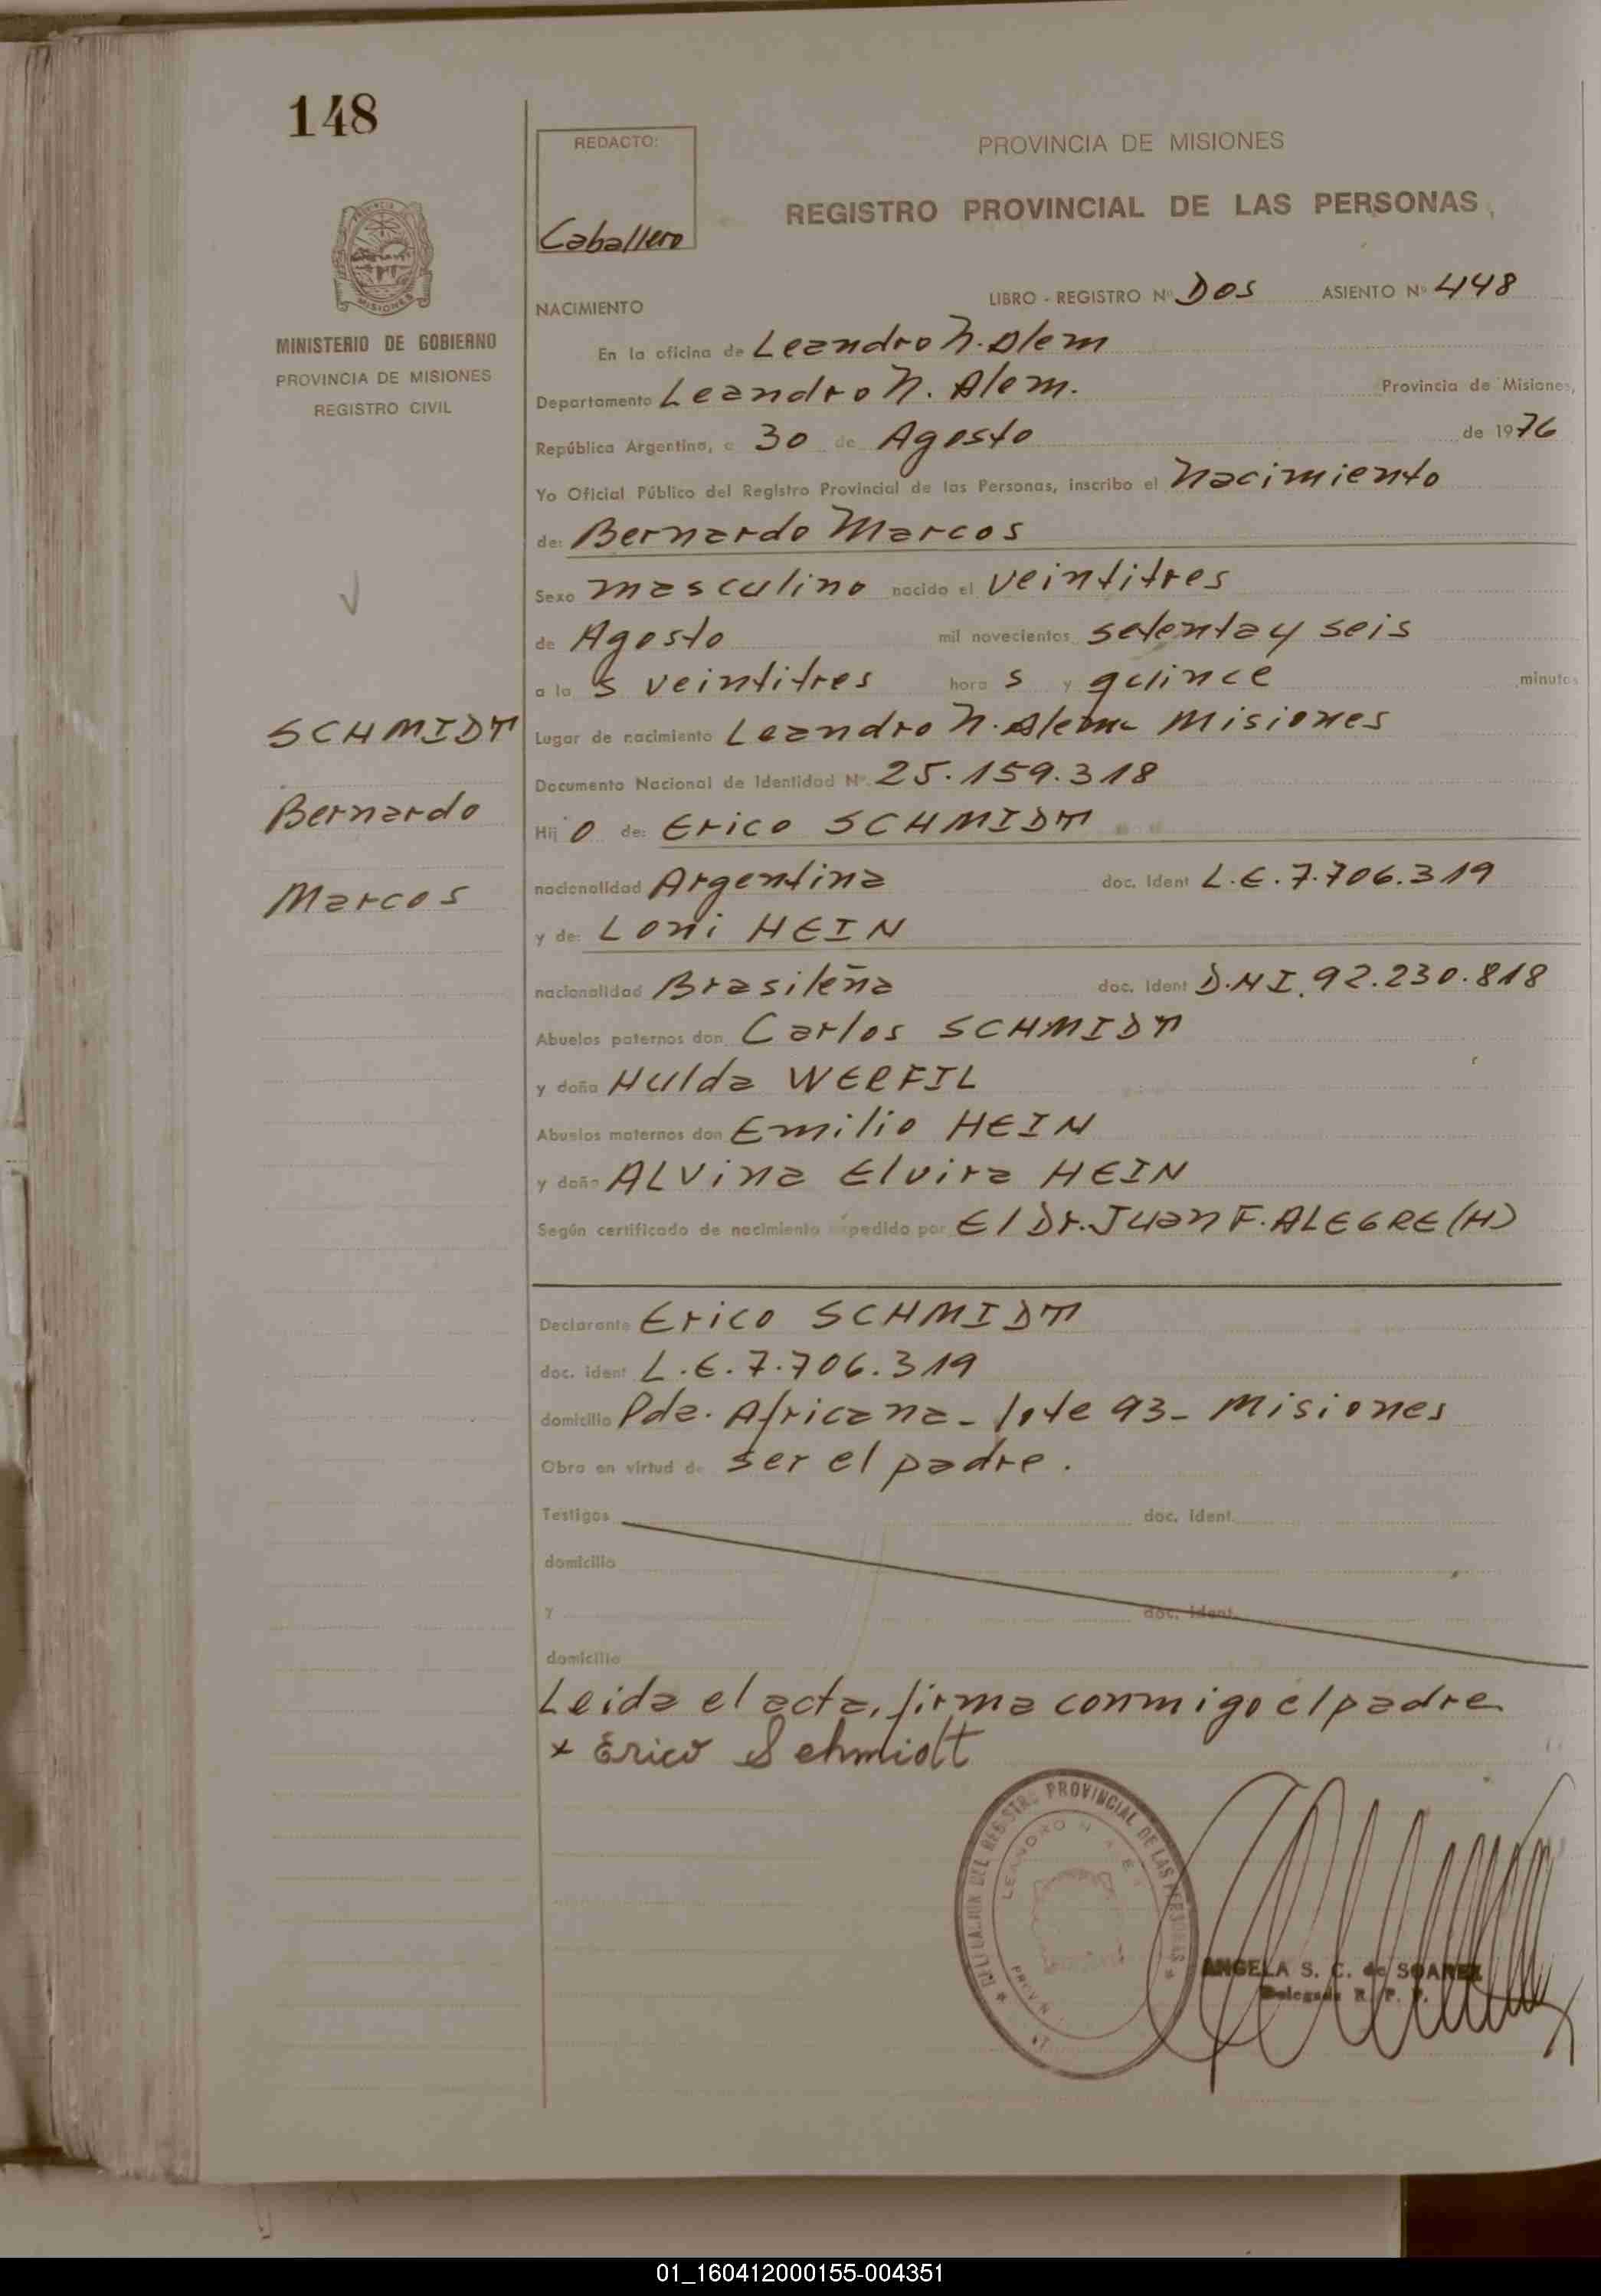 148
REDACTO:
Caballero
PROVINCIA DE MISIONES
REGISTRO PROVINCIAL DE LAS PERSONAS
MISIONES
MINISTERIO DE GOBIERNO
PROVINCIA DE MISIONES
REGISTRO CIVIL
NACIMIENTO
LIBRO - REGISTRO Nº Dos ASIENTO Nº 448
En la oficina de Leandro N. Alem
Departamento Leandro N. Alem. Provincia de Misiones,
República Argentina, a 30 de Agosto de 1976
Yo Oficial Público del Registro Provincial de las Personas, inscribo el Nacimiento
de: Bernardo Marcos
Sexo masculino nacido el veintitres
de Agosto mil novecientos setenta y seis
a la s veintitres hora s y quince minutos
SCHMIDT
Bernardo
Marcos
Lugar de nacimiento Leandro N. Alem Misiones
Documento Nacional de Identidad Nº 25.159.318
Hij o de: Erico SCHMIDT
nacionalidad Argentina doc. Ident L.E. 7.706.319
y de: Loni HEIN
nacionalidad Brasileña doc. Ident D.N.I. 92.230.818
Abuelos paternos don Carlos SCHMIDT
y doña Hulda WERFIL
Abuelos maternos don Emilio HEIN
y doña ALVina Elvira HEIN
Según certificado de nacimiento expedido por El Dr. Juan F. ALEGRE (H)
Declarante Erico SCHMIDT
doc. ident L.E. 7.706.319
domicilio Pda. Africana - lote 93 - Misiones
Obra en virtud de ser el padre.
Testigos doc. Ident.
domicilio
y doc. Ident.
domicilio
Leida el acta, firma conmigo el padre
x Erico Schmidt
DELEGACION DEL REGISTRO PROVINCIAL DE LAS PERSONAS
LEANDRO N. ALEM
ANGELA S. C. de SOAREZ
Delegada R. P. P.
01_160412000155-004351